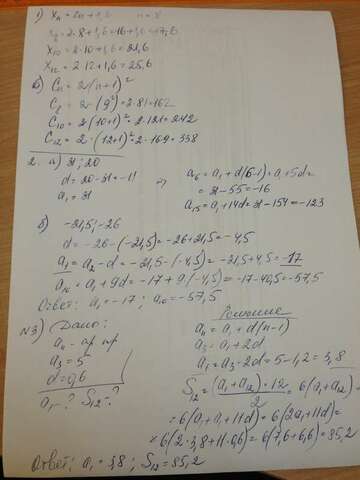 1) Xn = 2n + 1,6 n = 8
X8 = 2·8+1,6=16+1,6=17,6
X10 = 2·10+1,6=21,6
X12 = 2·12+1,6=25,6
б) Cn = 2(n+1)²
C8 = 2·(9²)=2·81=162
C10 = 2(10+1)²=2·121=242
C12 = 2·(12+1)²=2·169=338
2. а) 31; 20
d = 20-31=-11
a1 = 31
=> a6 = a1+d(6-1)=a1+5d=
= 31-55=-16
a15 = a1+14d=31-154=-123
б) -21,5; -26
d = -26-(-21,5)=-26+21,5=-4,5
a1 = a2-d=-21,5-(-4,5)=-21,5+4,5=-17
a10 = a1+9d=-17+9(-4,5)=-17-40,5=-57,5
Ответ: a1=-17; a10=-57,5
N3) Дано:
an - ар пр
a3 = 5
d = 0,6
a1 - ? S12 - ?
Решение
an = a1+d(n-1)
a3 = a1+2d
a1 = a3-2d=5-1,2=3,8
S12 = (a1+a12)·12/2 = 6(a1+a12)=
=6(a1+a1+11d)=6(2a1+11d)=
=6(2·3,8+11·0,6)=6(7,6+6,6)=85,2
Ответ: a1=3,8; S12=85,2